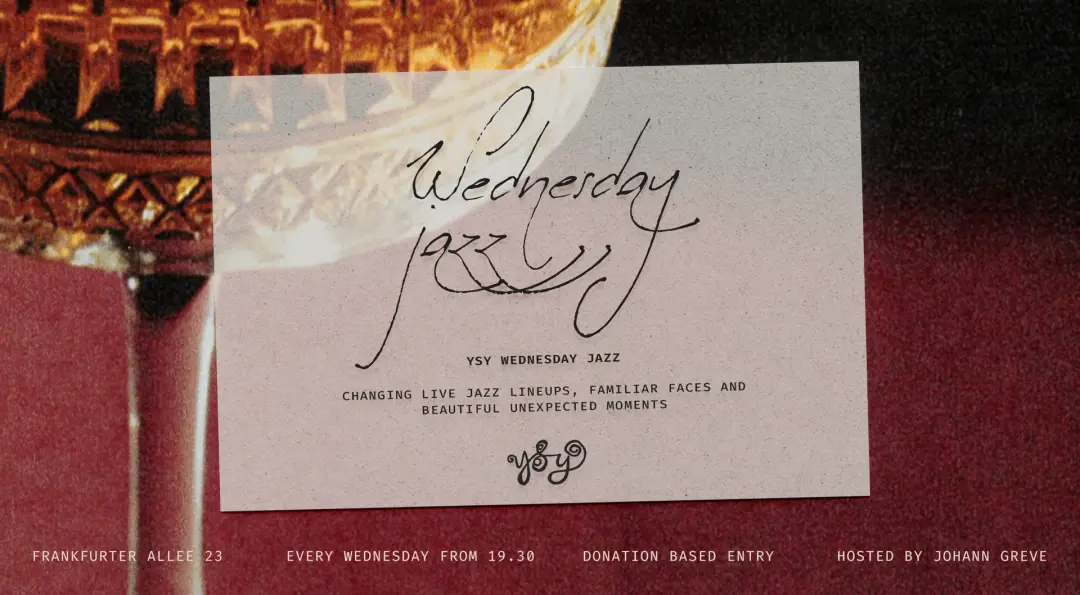 Wednesday
jazz
YSY WEDNESDAY JAZZ
CHANGING LIVE JAZZ LINEUPS, FAMILIAR FACES AND
BEAUTIFUL UNEXPECTED MOMENTS
ysy
FRANKFURTER ALLEE 23
EVERY WEDNESDAY FROM 19.30
DONATION BASED ENTRY
HOSTED BY JOHANN GREVE